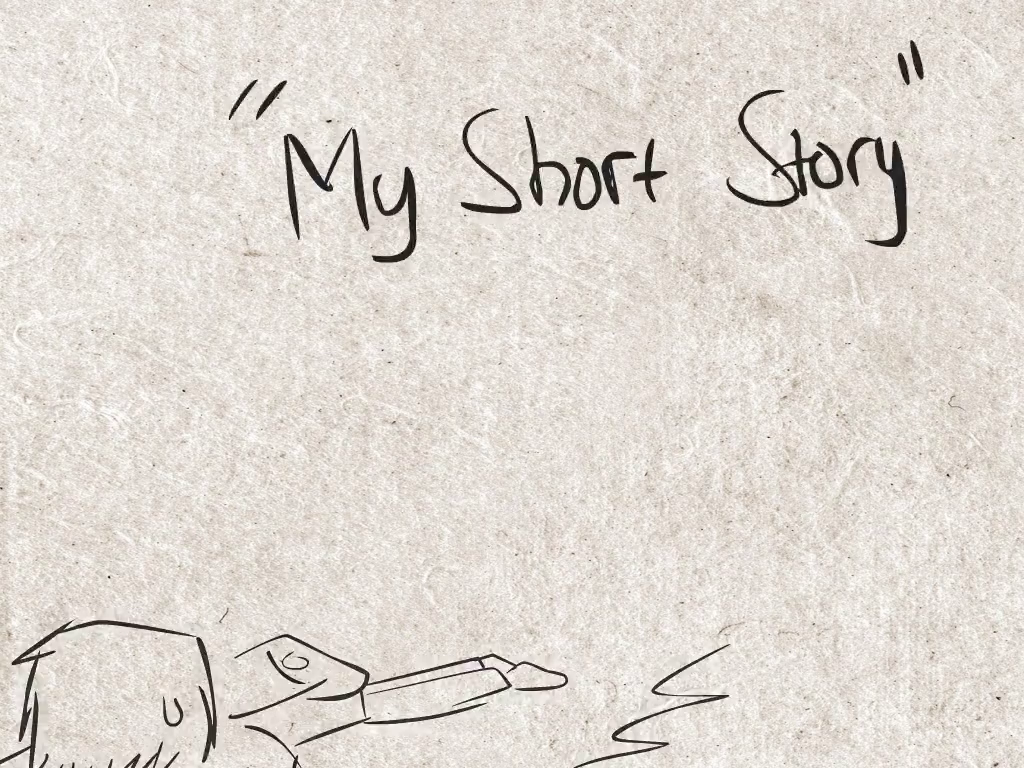 "My Short Story"